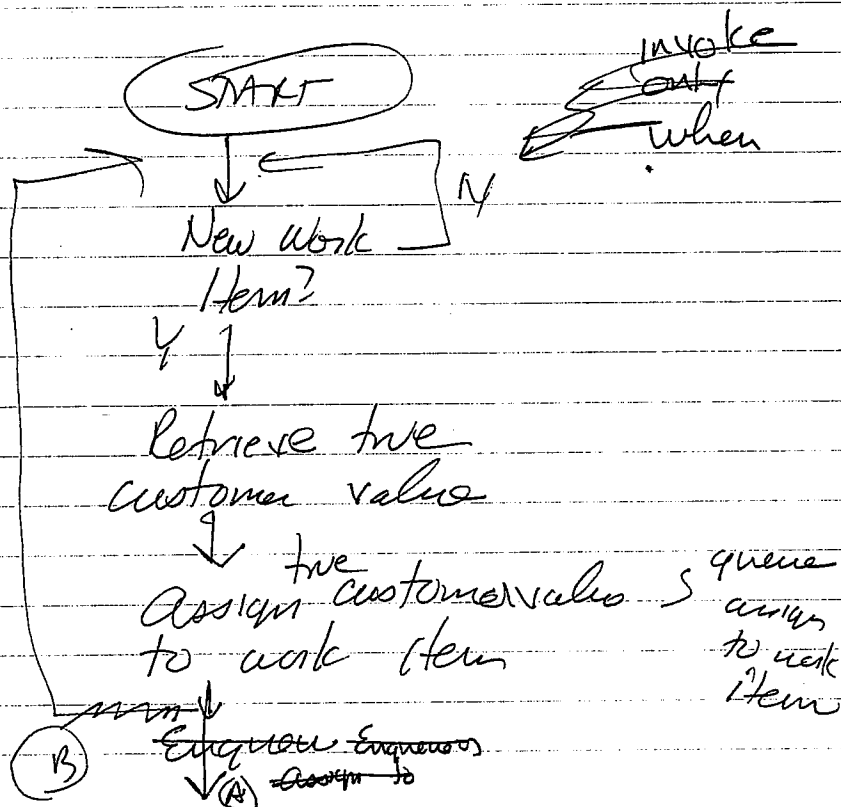 START
invoke
only
when
N
New Work
Item?
Y
Retrieve true
customer value
true
assign customer value
to work item
queue
assign
to work
item
B
Enqueue
assign to
A